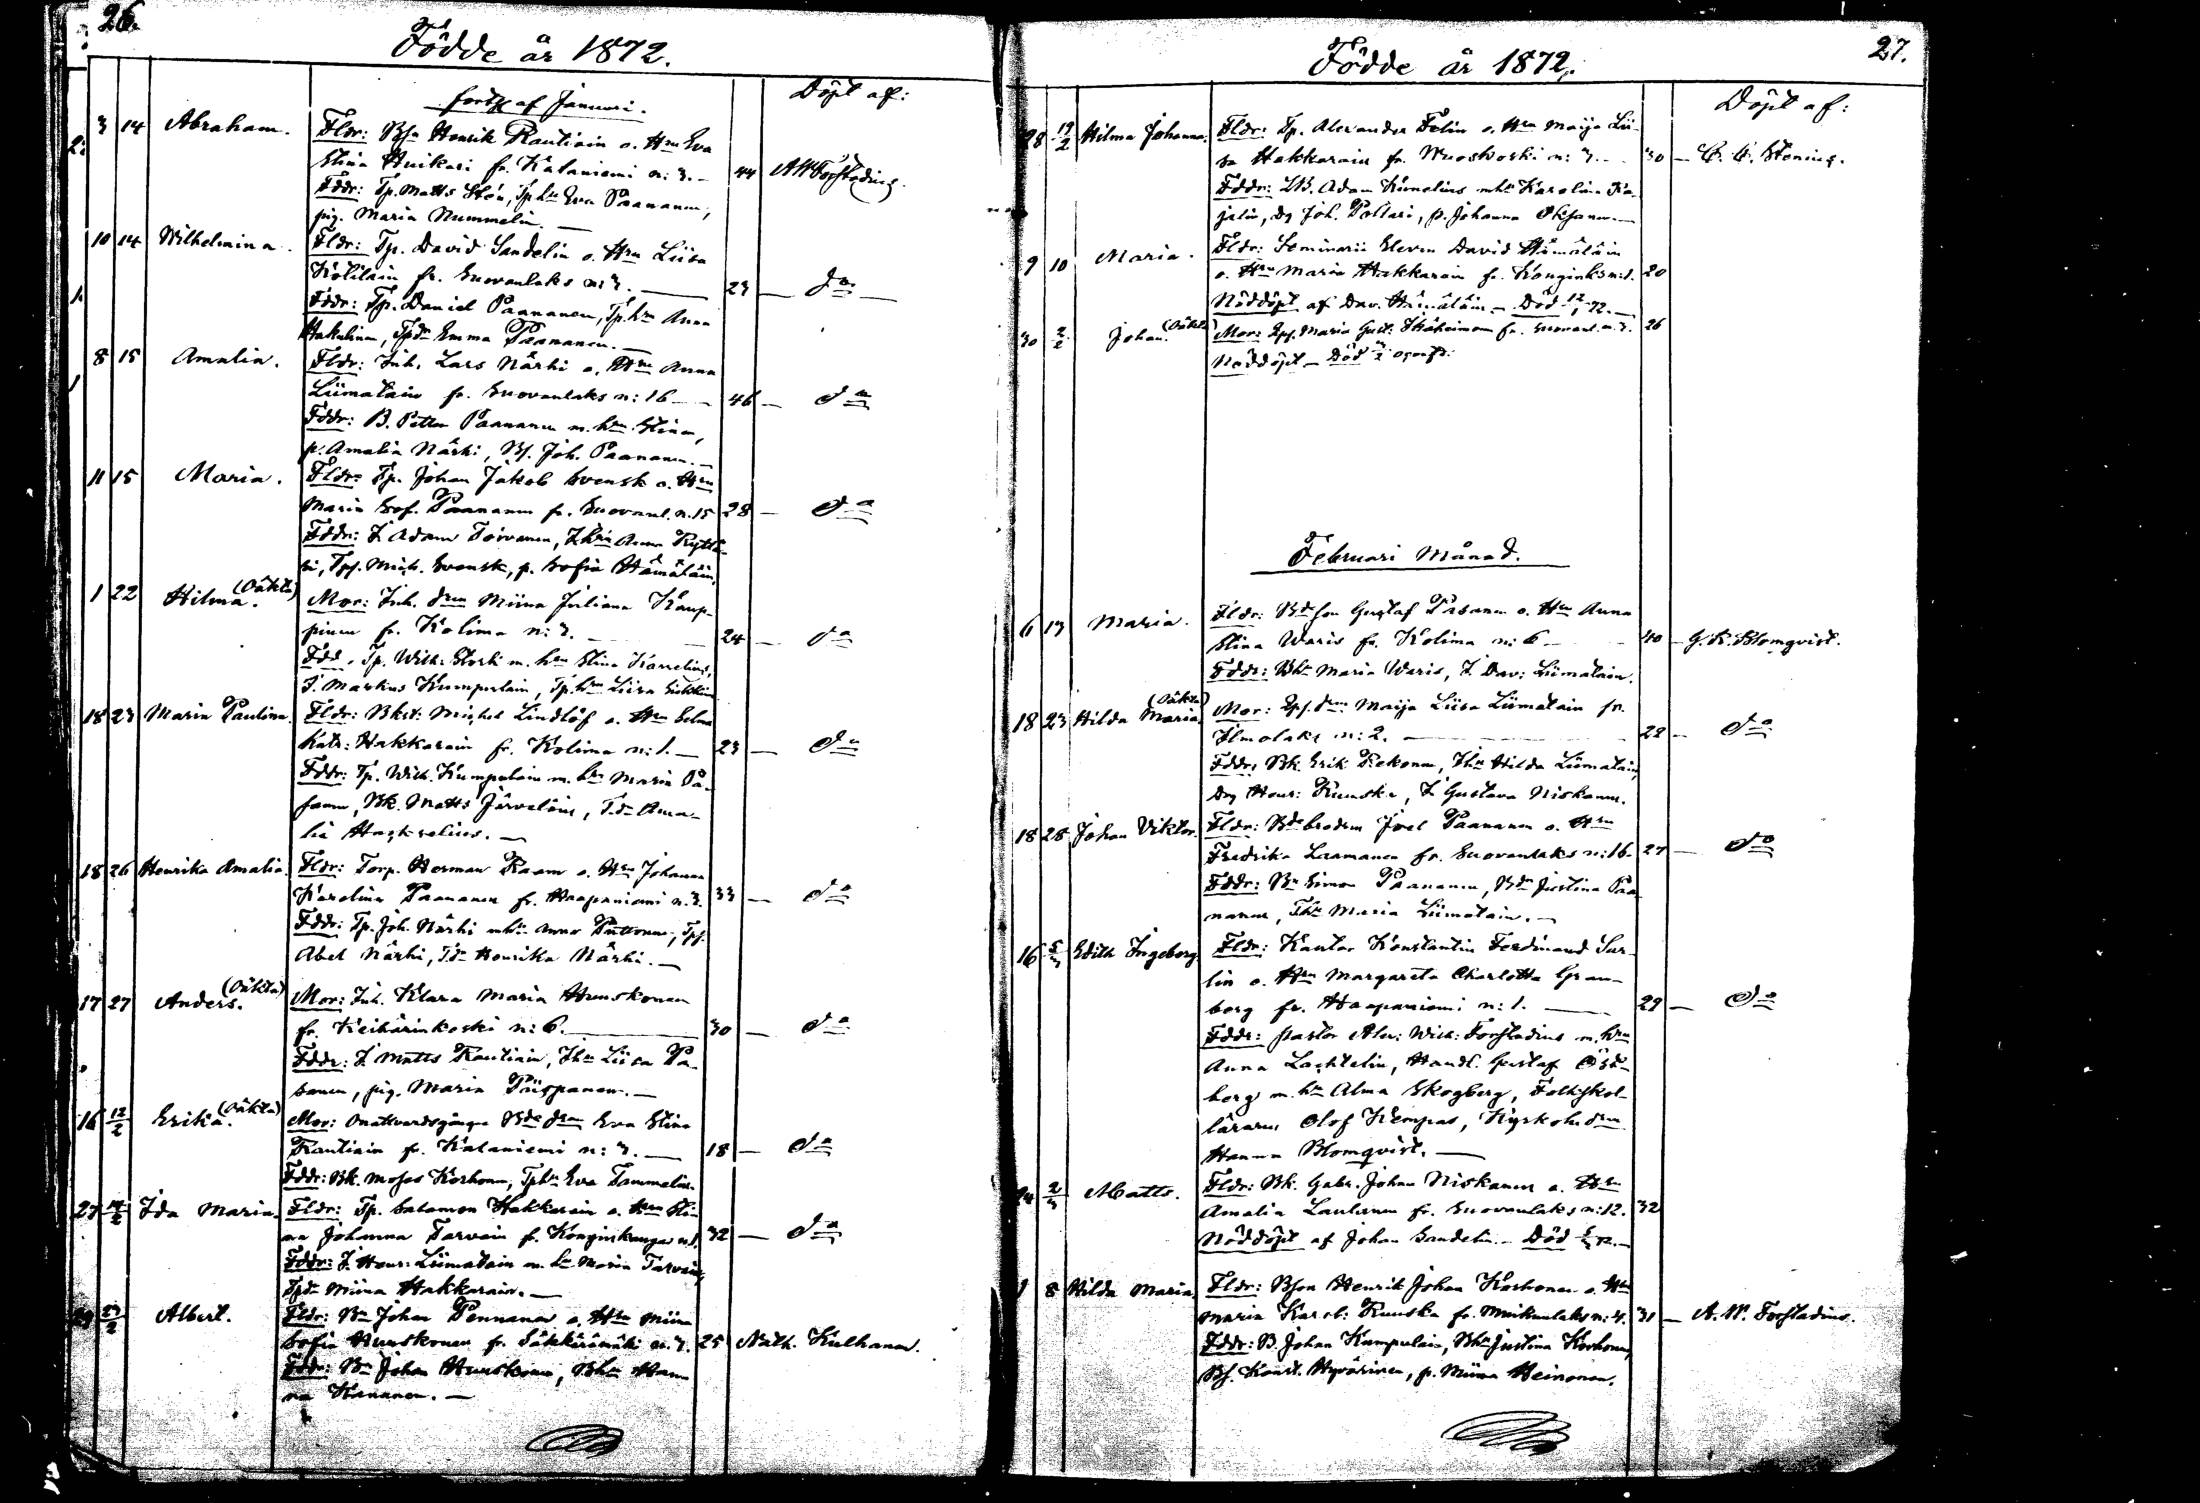 26.
Födde år 1872.
fortg af Januari.
Döpt af:
3 14 Abraham. Fldr: Bsn Henrik Rautiain o. Hru Eva
Stina Huikari fr. Kalaniemi n: 3. 44 AW Forstadius.
Fddr: Tp. Matts Stén, Tp.hu Eva Paananen,
pig. Maria Nummelin.
10 14 Wilhelmina. Fldr: Tp. David Sandelin o. Hru Liisa
Kotilain fr. Suovanlaks n: 3. 23 do
Fddr: Tp. Daniel Paananen, Tp.hru Anna
Hakulinen, Tpdr Emma Paananen.
8 15 Amalia. Fldr: Inh. Lars Närhi o. Hru Anna
Liimatain fr. Suovanlaks n: 16 46 do
Fddr: B. Petter Paananen m. hru Stina,
p. Amalia Närhi, Bs. Joh. Paananen.
11 15 Maria. Fldr: Tp. Johan Jakob Svensk o. Hru
Maria Sof. Paananen fr. Suovanl. n. 15 28 do
Fddr: I. Adam Torvanen, I.hru Anna
Tps. Mich. Svensk, p. Sofia Hämäläin.
1 22 Hilma. (Oäkta) Mor: Inh. dren Miina Juliana Kaup-
pinen fr. Kolima n: 3. 24 do
Fdd. Tp. Wilh: Storb m. hru Stina Karrelius,
I. Markus Kumpulain, Tp.hru Liisa
18 23 Maria Paulina. Fldr: Bkst: Michel Lindlöf o. Hru Selma
Katr: Hakkarain fr. Kolima n: 1. 23 do
Fddr: Tp. Wilh. Kumpulain m. hru Maria Pa-
sanen, Bk. Matts Järveläin, T.dr Ama-
lia
18 26 Henrika Amalia. Fldr: Torp. Herman Raam o. Hru Johanna
Karolina Paananen fr. Haapaniemi n. 3. 33 do
Fddr: Tp. Joh. Närhi mhu Anna Puttonen, Tps.
Abel Närhi, Tdr Henrika Närhi.
17 27 Anders. (Oäkta) Mor: Inh. Klara Maria Hunskonen
fr. Keihärinkoski n: 6. 30 do
Fddr: I. Matts Rautiain, Ihru Liisa Pa-
sanen, pig. Maria Piispanen.
16 12/2 Erika. (Oäkta) Mor: Nattvardsgånga Bde dren Eva Stina
Rautiain fr. Kalaniemi n: 3. 18 do
Fddr: Bk. Moses Korhonen, Tphru Eva Tammelin.
27 14/2 Ida Maria. Fldr: Tp. Salomon Hakkarain o. Hru Sti-
na Johanna Tarvain fr. Konginkangas n. 1. 32 do
Fddr: I. Henr: Liimatain m. hu Maria Tarvain,
Tpdr Miina Hakkarain.
29 23/2 Albert. Fldr: Bn Johan Pennanen o. Hru Miina
Sofia Hunskonen fr. Säkkärämäki n. 3. 25 Nath. Kulhanen.
Fddr: Bn Johan Hunskonen, Bhu Han-
na Kananen.
27.
Födde år 1872.
Döpt af:
28 19/2 Hilma Johanna. Fldr: Tp. Alexander Felin o. Hru Maija Lii-
sa Hakkarain fr. Wuoskoski n: 3. 30 C. G. Stenius.
Fddr: LB. Adam Kumelius mhu Karolina Ka-
jalin, Dg Joh. Pollari, p. Johanna Oksanen.
9 10 Maria. Fldr: Seminarii Eleven David Hämäläin
o. Hru Maria Hakkarain fr. Konginks n: 1. 20
Nöddöpt af Dav. Hämäläin. Död 12/1 72.
30 2/2 Johan. (Oäkta) Mor: Tps. Maria Gust: Ikäheimon fr. Suovanl. n. 3. 26
Nöddöpt – Död
Februari Månad.
6 13 Maria. Fldr: Bdeson Gustaf Pasanen o. Hru Anna
Stina Waris fr. Kolima n: 6 40 G. R. Blomqvist.
Fddr: Bhu Maria Waris, I. Dav: Liimatain.
18 23 Hilda Maria. (Oäkta) Mor: Tps. dren Maija Liisa Liimatain fr.
Ilmolaks n: 2. 22 do
Fddr: Bk. Erik Kekonen, Ihu Hilda Liimatain,
Dg Henr: Ruuska, I. Gustava Niskanen.
18 28 Johan Viktor. Fldr: Bdebrodren Joel Paananen o. Hru
Fredrika Laamanen fr. Suovanlaks n: 16. 27 do
Fddr: Bn Simon Paananen, Bdr Justina Paa-
nanen, Thu Maria Liimatain.
16 5/3 Edith Ingeborg. Fldr: Kantor Konstantin Ferdinand Sar-
lin o. Hru Margareta Charlotta Gran-
borg fr. Haapaniemi n: 1. 29 do
Fddr: Pastor Alex: Wilh: Forstadius m. hru
Anna Lagktelin, Handl. Gustaf Öst-
berg m. hu Alma Skogberg, Folkskol-
läraren Olof Kempas, Kyrkohdren
Hanna Blomqvist.
24 2/3 Matts. Fldr: Bk. Gabr. Johan Niskanen o. Hru
Amalia Laulainen fr. Suovanlaks n: 12. 32
Nöddöpt af Johan Sandelin. Död 5/3 72.
1 8 Hilda Maria. Fldr: Bson Henrik Johan Korhonen o. Hru
Maria Karol: Ruuska fr. Muikunlaks n: 4. 31 A. W. Forstadius.
Fddr: B. Johan Kumpulain, Bhu Justina Korhonen,
Bs. Konst. Hyvärinen, p. Miina Heinonen.